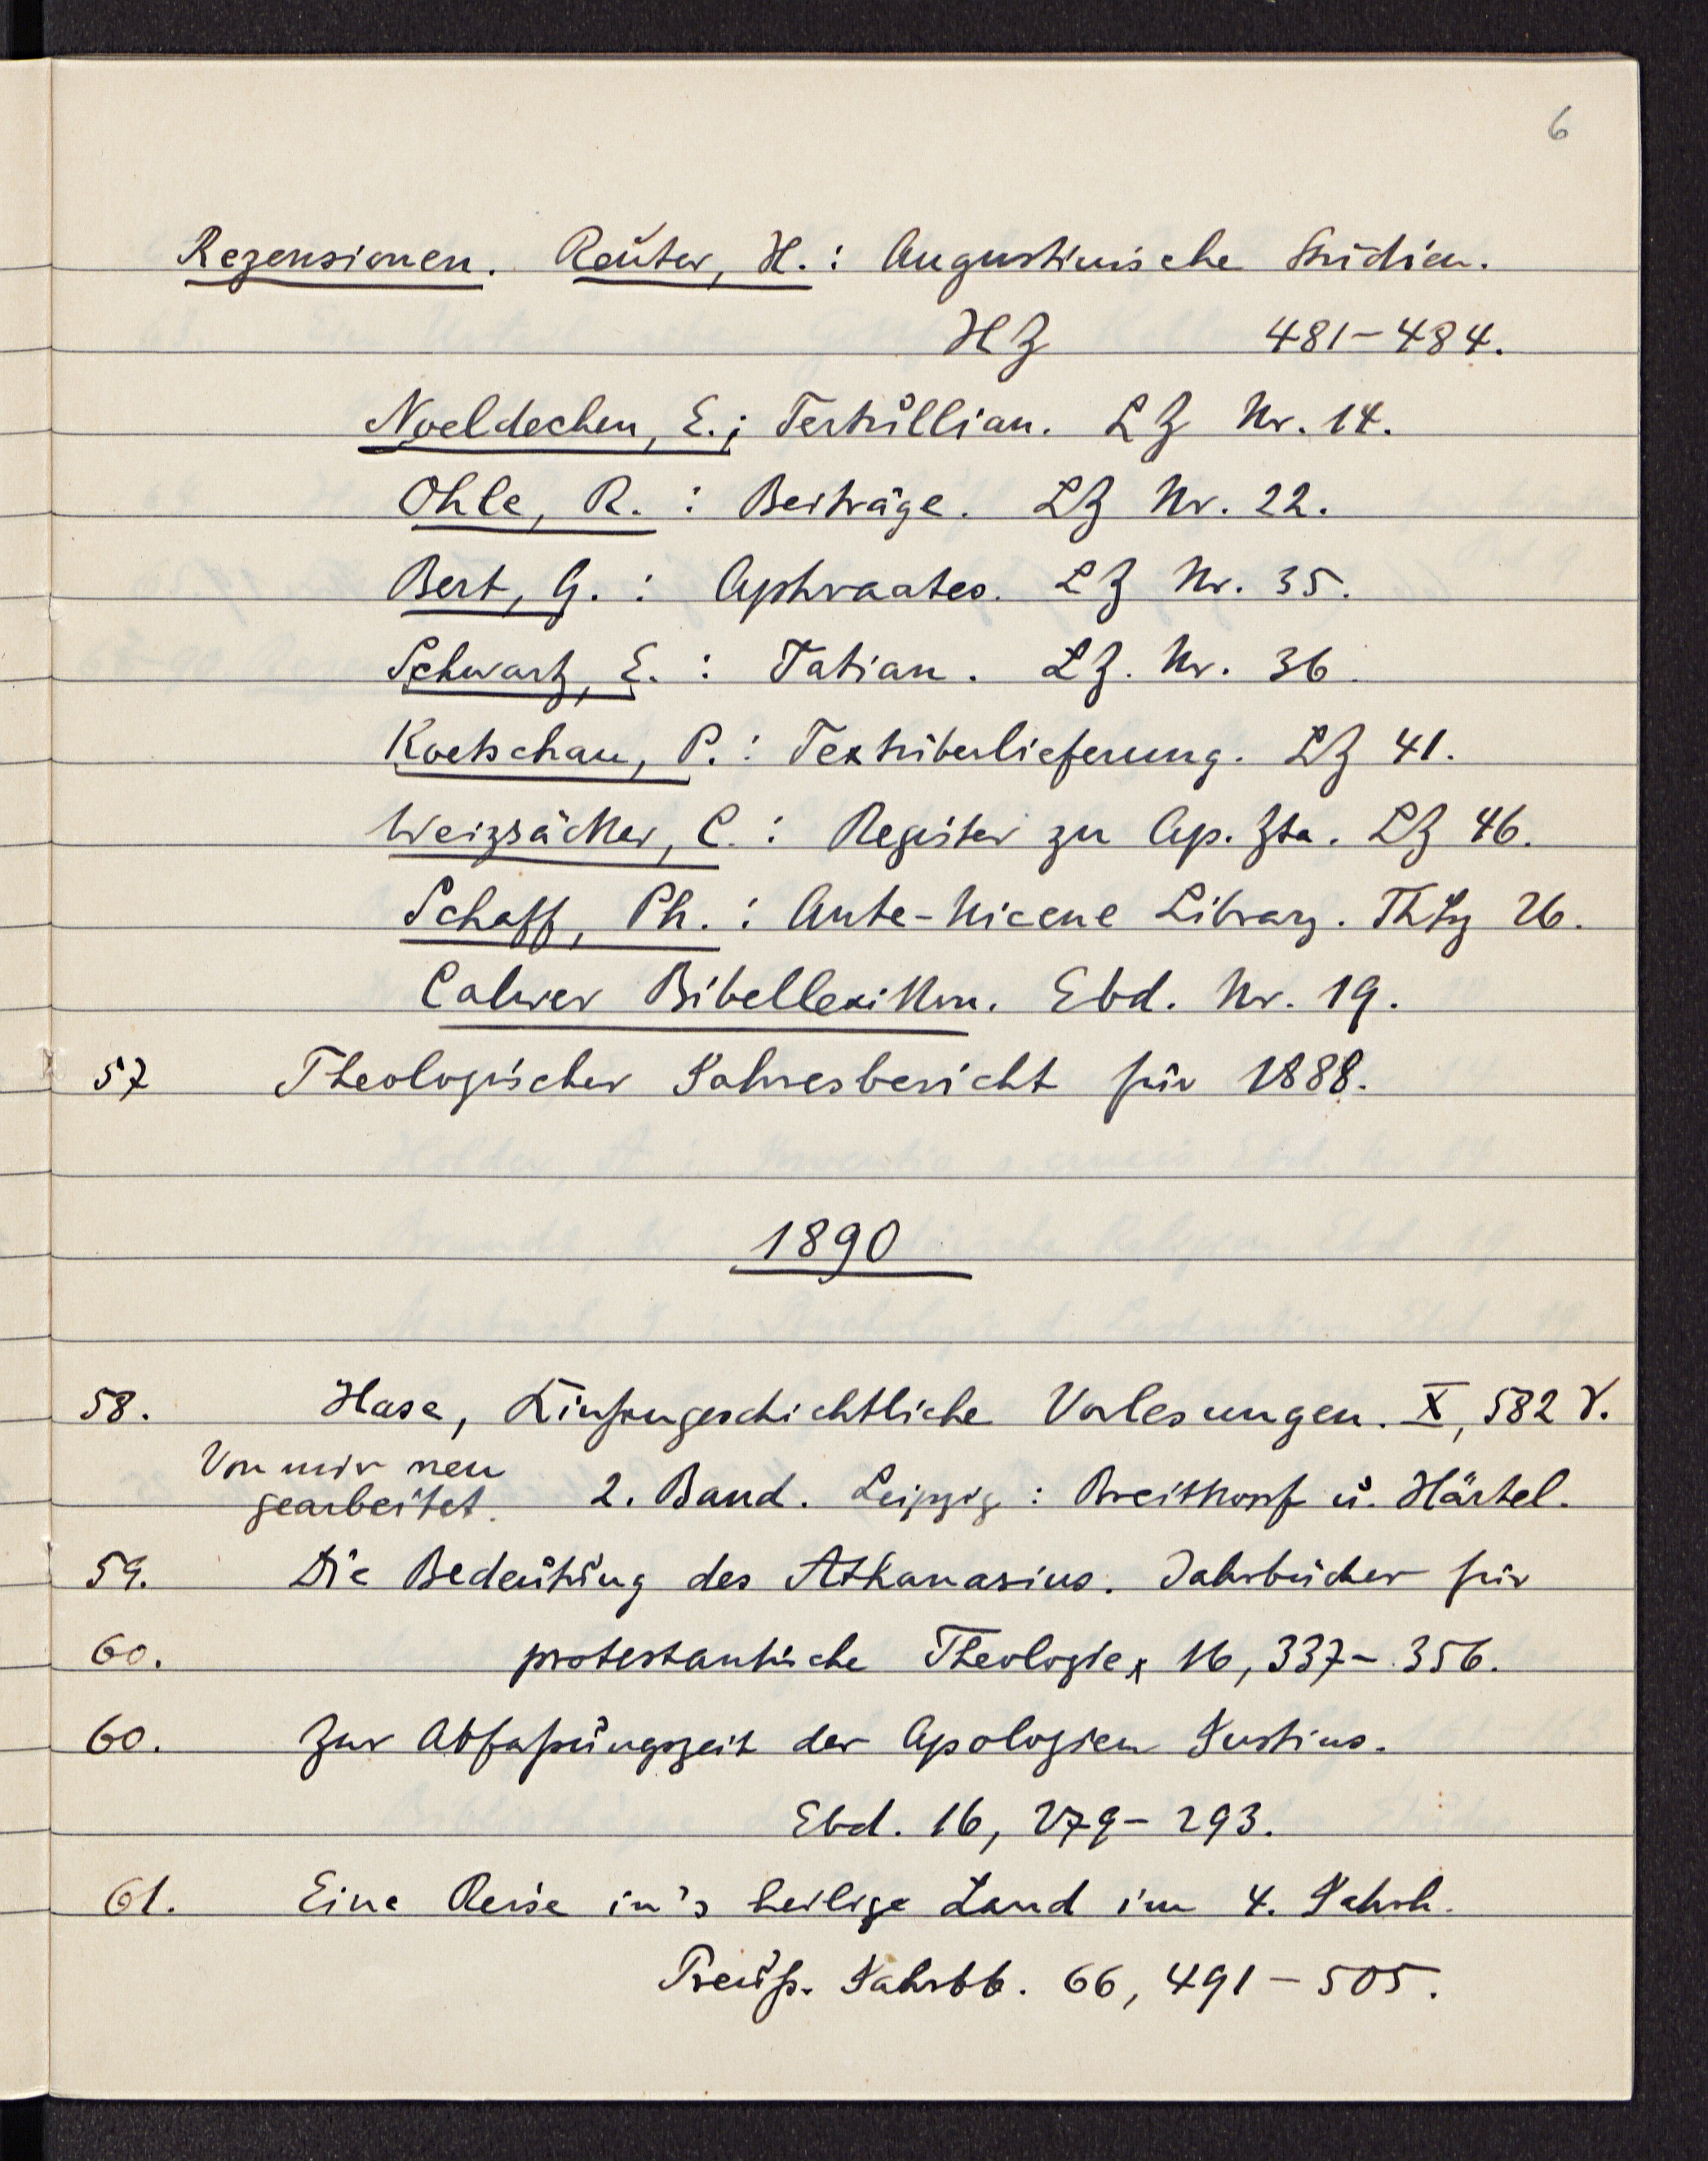 6
Rezensionen. Reuter, H.: Augustinische Studien.
HZ 481-484.
Noeldechen, E.; Tertullian. LZ Nr. 14.
Ohle, R.: Beiträge. LZ Nr. 22.
Bert, G.: Aphraates. LZ Nr. 35.
Schwartz, E.: Tatian. LZ. Nr. 36.
Koetschau, P.: Textüberlieferung. LZ 41.
Weizsäcker, C.: Register zu Ap. Zta. LZ 46.
Schaff, Ph.: Ante-Nicene Library. ThLz 26.
Calwer Bibellexikon. Ebd. Nr. 19.
57 Theologischer Jahresbericht für 1888.
1890
58. Hase, Kirchengeschichtliche Vorlesungen. X, 582 S.
Von mir neu
gearbeitet. 2. Band. Leipzig: Breitkopf u. Härtel.
59. Die Bedeutung des Athanasius. Jahrbücher für
60. protestantische Theologie, 16, 337-356.
60. Zur Abfaßungszeit der Apologien Justins.
Ebd. 16, 279-293.
61. Eine Reise in's heilige Land im 4. Jahrh.
Preuß. Jahrbb. 66, 491-505.